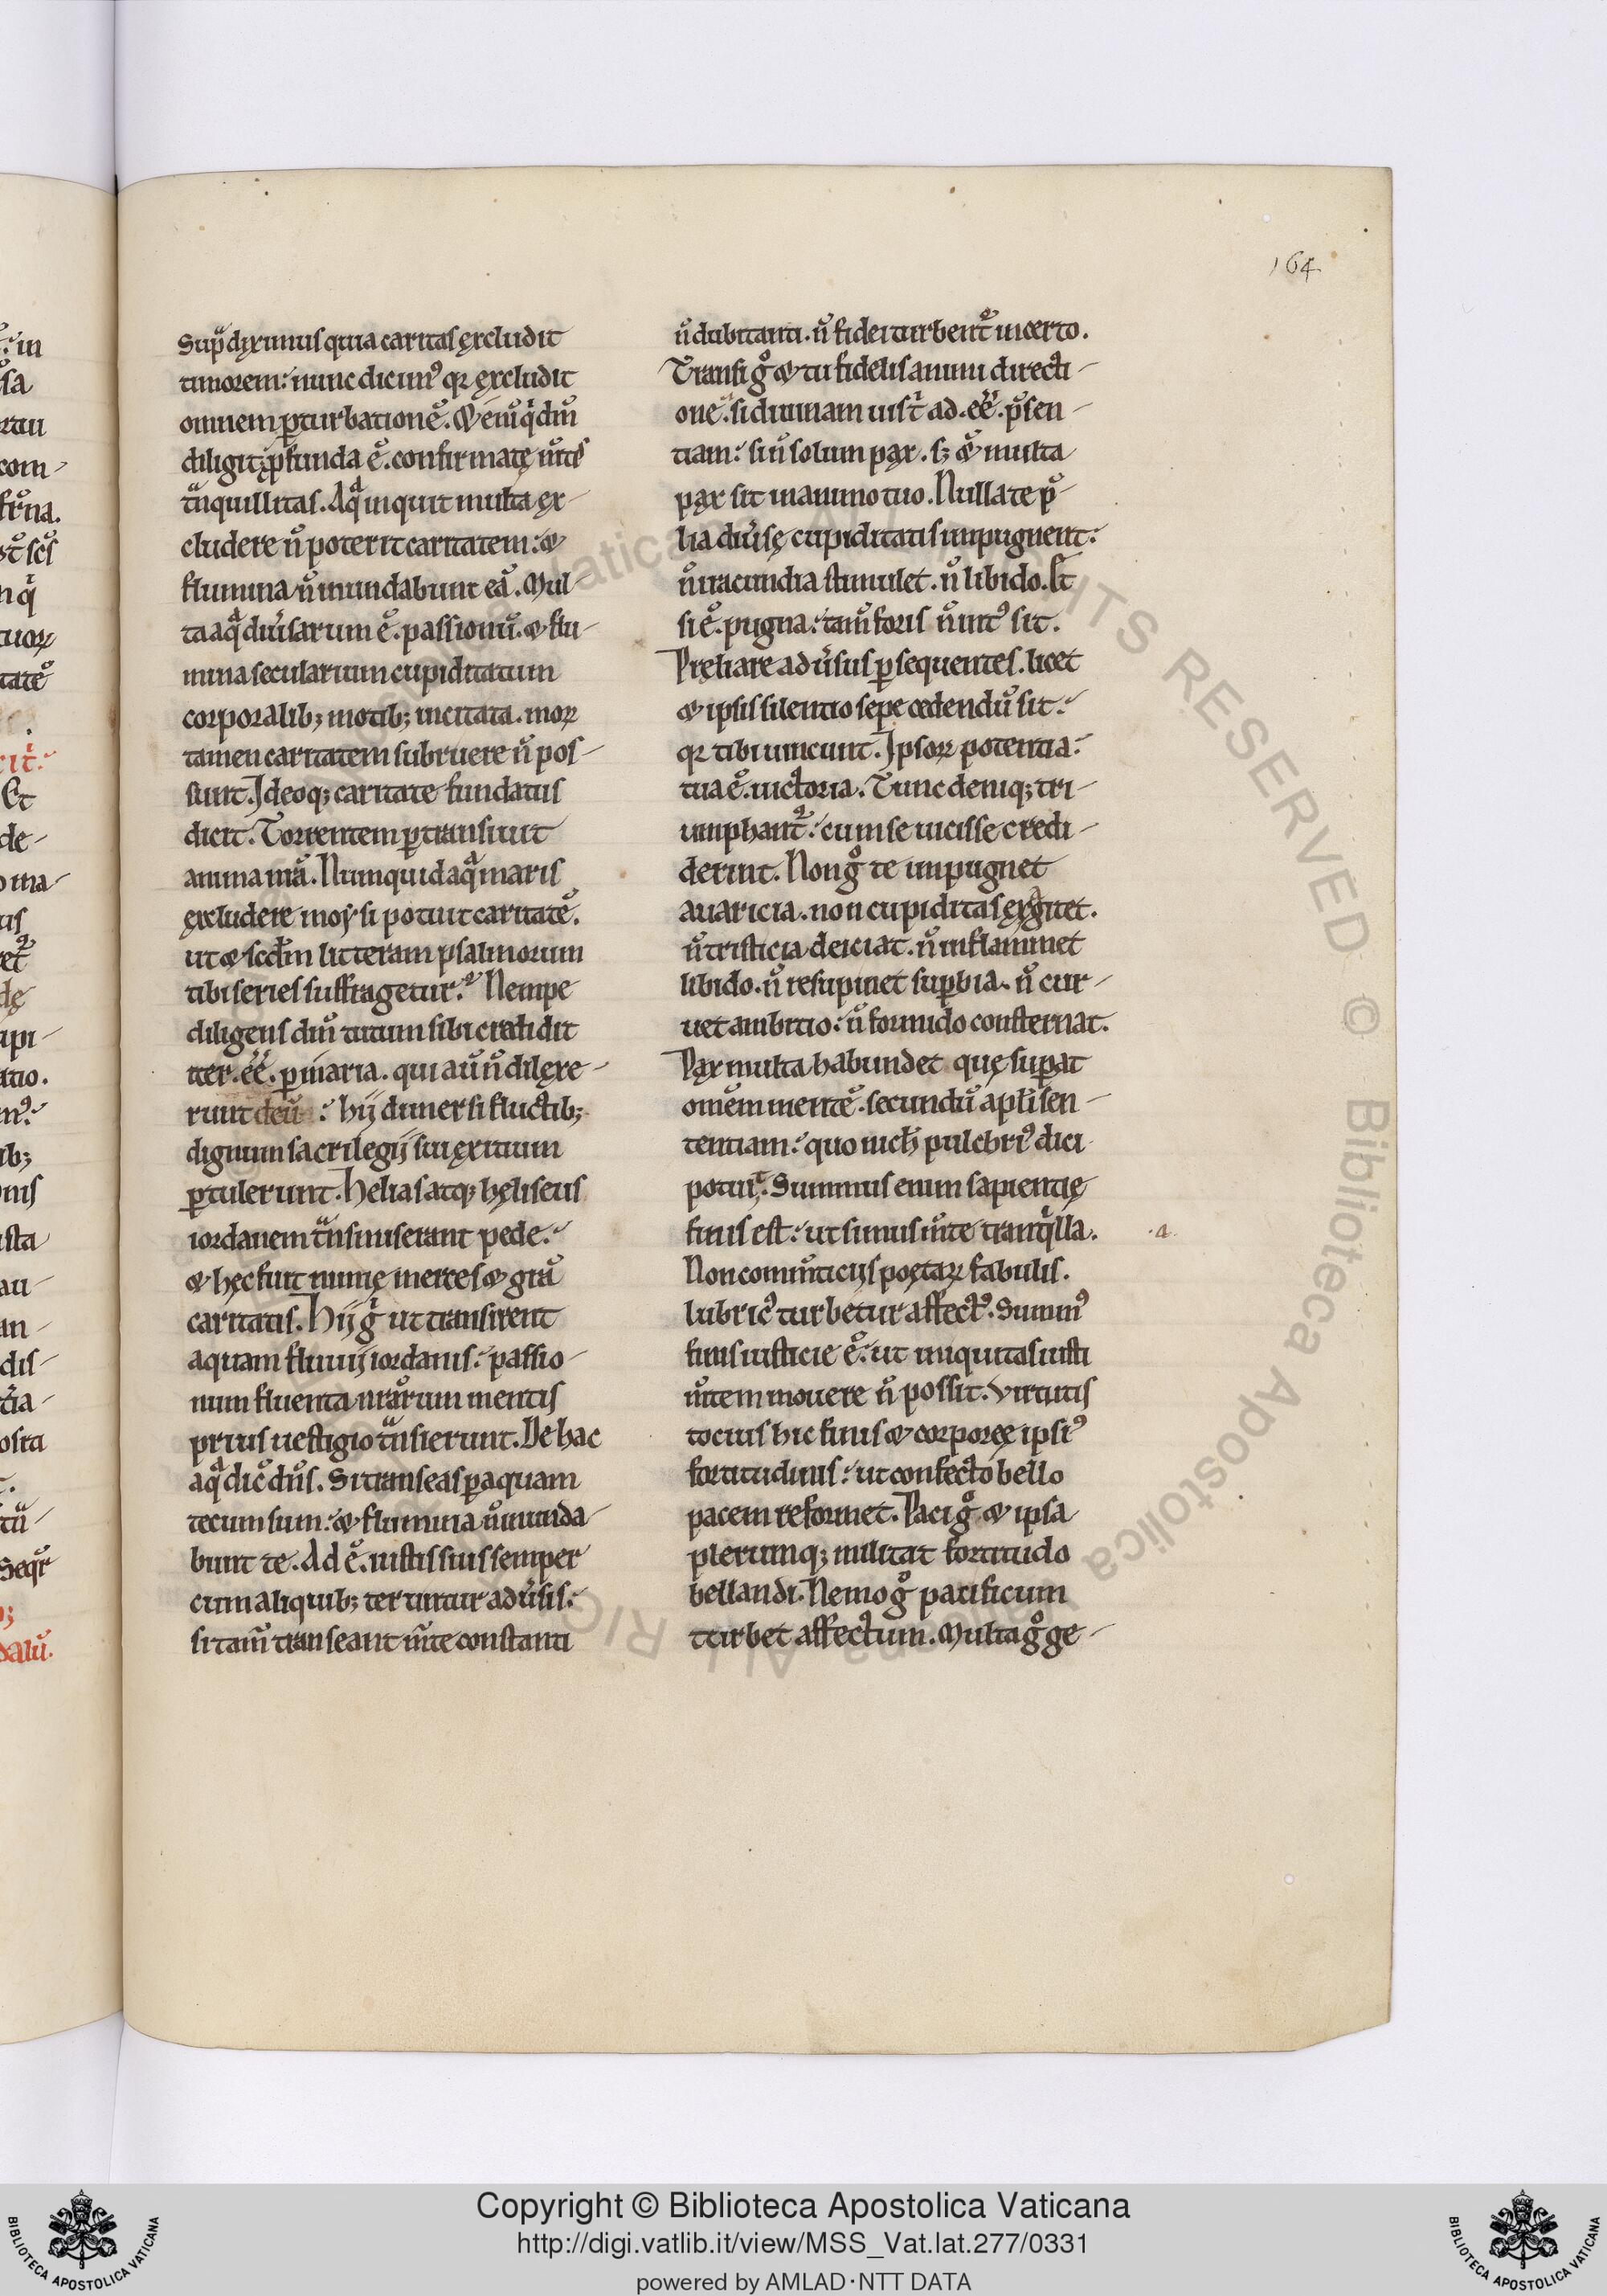 164
Sup̄ diximus quia caritas excludit
timorem: nunc dicim᷒ qꝛ excludit
omnem ꝑturbationē. Et eni͂ q̇ dn̄m
diligit: ꝓfunda ē. confirmatę mn̄tis
tᷓnquillitas. Aqᷓ inquit multa ex-
cludere n̄ poterit caritatem: et
flumina n̄ inundabunt eā. Mul-
ta aqᷓ diu̾sarum ē. passionū. et flu-
mina secularium cupiditatum
corporalib; motib; incitata. moꝝ
tamen caritatem subruere n̄ pos-
sunt. Ideoq; caritate fundatus
dicit. Torrentem ꝑtransiuit
anima mā. Numquid aqᷓ maris
excludere moysi potuit caritatē.
ut et scdm̄ litteram psalmorum
tibi series suffragetur? Nempe
diligens dn̄m tutum sibi credidit
iter. eē. ꝑ maria. qui au̅ n̄ dilexe-
runt deū: hij dimersi fluctib;
dignum sacrilegij sui exitium
ꝑtulerunt. Helias atq; heliseus
iordanem tᷓnsmiserant pede:
et hęc fuit nimię merces et grā
caritatis. Hij gͥ ut transirent
aquam fluuij iordanis: passio-
num fluenta nr̄arum mentis
prius uestigio tᷓnsierunt. De hac
aqᷓ dic̄ dn̄s. Si transeas ꝑ aquam
tecum sum: et flumina n̄ inunda-
bunt te. Ad ē. iustis suis semper
cum aliquib; teruntur adu̾sis:
si tam̄ transeant mn̄te constanti
n̄ dubitanti. n̄ fidei turbent᷑ incerto.
Transi gͦ et tu fidelis animi directi-
onē. si diuinam uis t̄ ad. eē. p̄sen-
tiam: si n̄ solum pax. s; et multa
pax sit in animo tuo. Nulla te p̄-
lia diu̾sę cupiditatis inpugnent:
n̄ iracundia stimulet. n̄ libido. 
si ē. pugna: tam̄ foris n̄ int᷒ sit.
Pręliare adu̾sus ꝑsequentes. licet
et ipsis silentio sępe cedendū sit:
qꝛ tibi uincunt. Ipsoꝝ potentia:
tua ē. uictoria. Tunc deniq; tri-
umphant᷑: cum se uicisse credi-
derint. Non gͦ te impugnet
auaricia. non cupiditas exᷓgitet.
n̄ tristicia deiciat. n̄ inflammet
libido. n̄ resupinet suꝑbia. n̄ cur-
uet ambitio: n̄ formido consternat.
Pax multa habundet quę suꝑat
omēm mentē. secundū apl̄i sen-
tentiam: quo nich̄ pulchri᷒ dici
potuit. Summus enim sapientię
finis est: ut simus mn̄te tranqͥlla.
Non comm̄ticijs poetaꝝ fabulis.
lubric᷒ turbetur affect᷒. Summ᷒
finis iusticie ē: ut iniquitas iusti
mn̄tem mouere n̄ possit. Virtutis
tocius hic finis et corporeę ipsi᷒
fortitudinis: ut confecto bello
pacem reformet. Paci gͦ et ipsa
plerumq; militat fortitudo
bellandi. Nemo gͦ pacificum
turbet affectum. Multa gͦ ge-
.a.
Copyright © Biblioteca Apostolica Vaticana
http://digi.vatlib.it/view/MSS_Vat.lat.277/0331
powered by AMLAD·NTT DATA